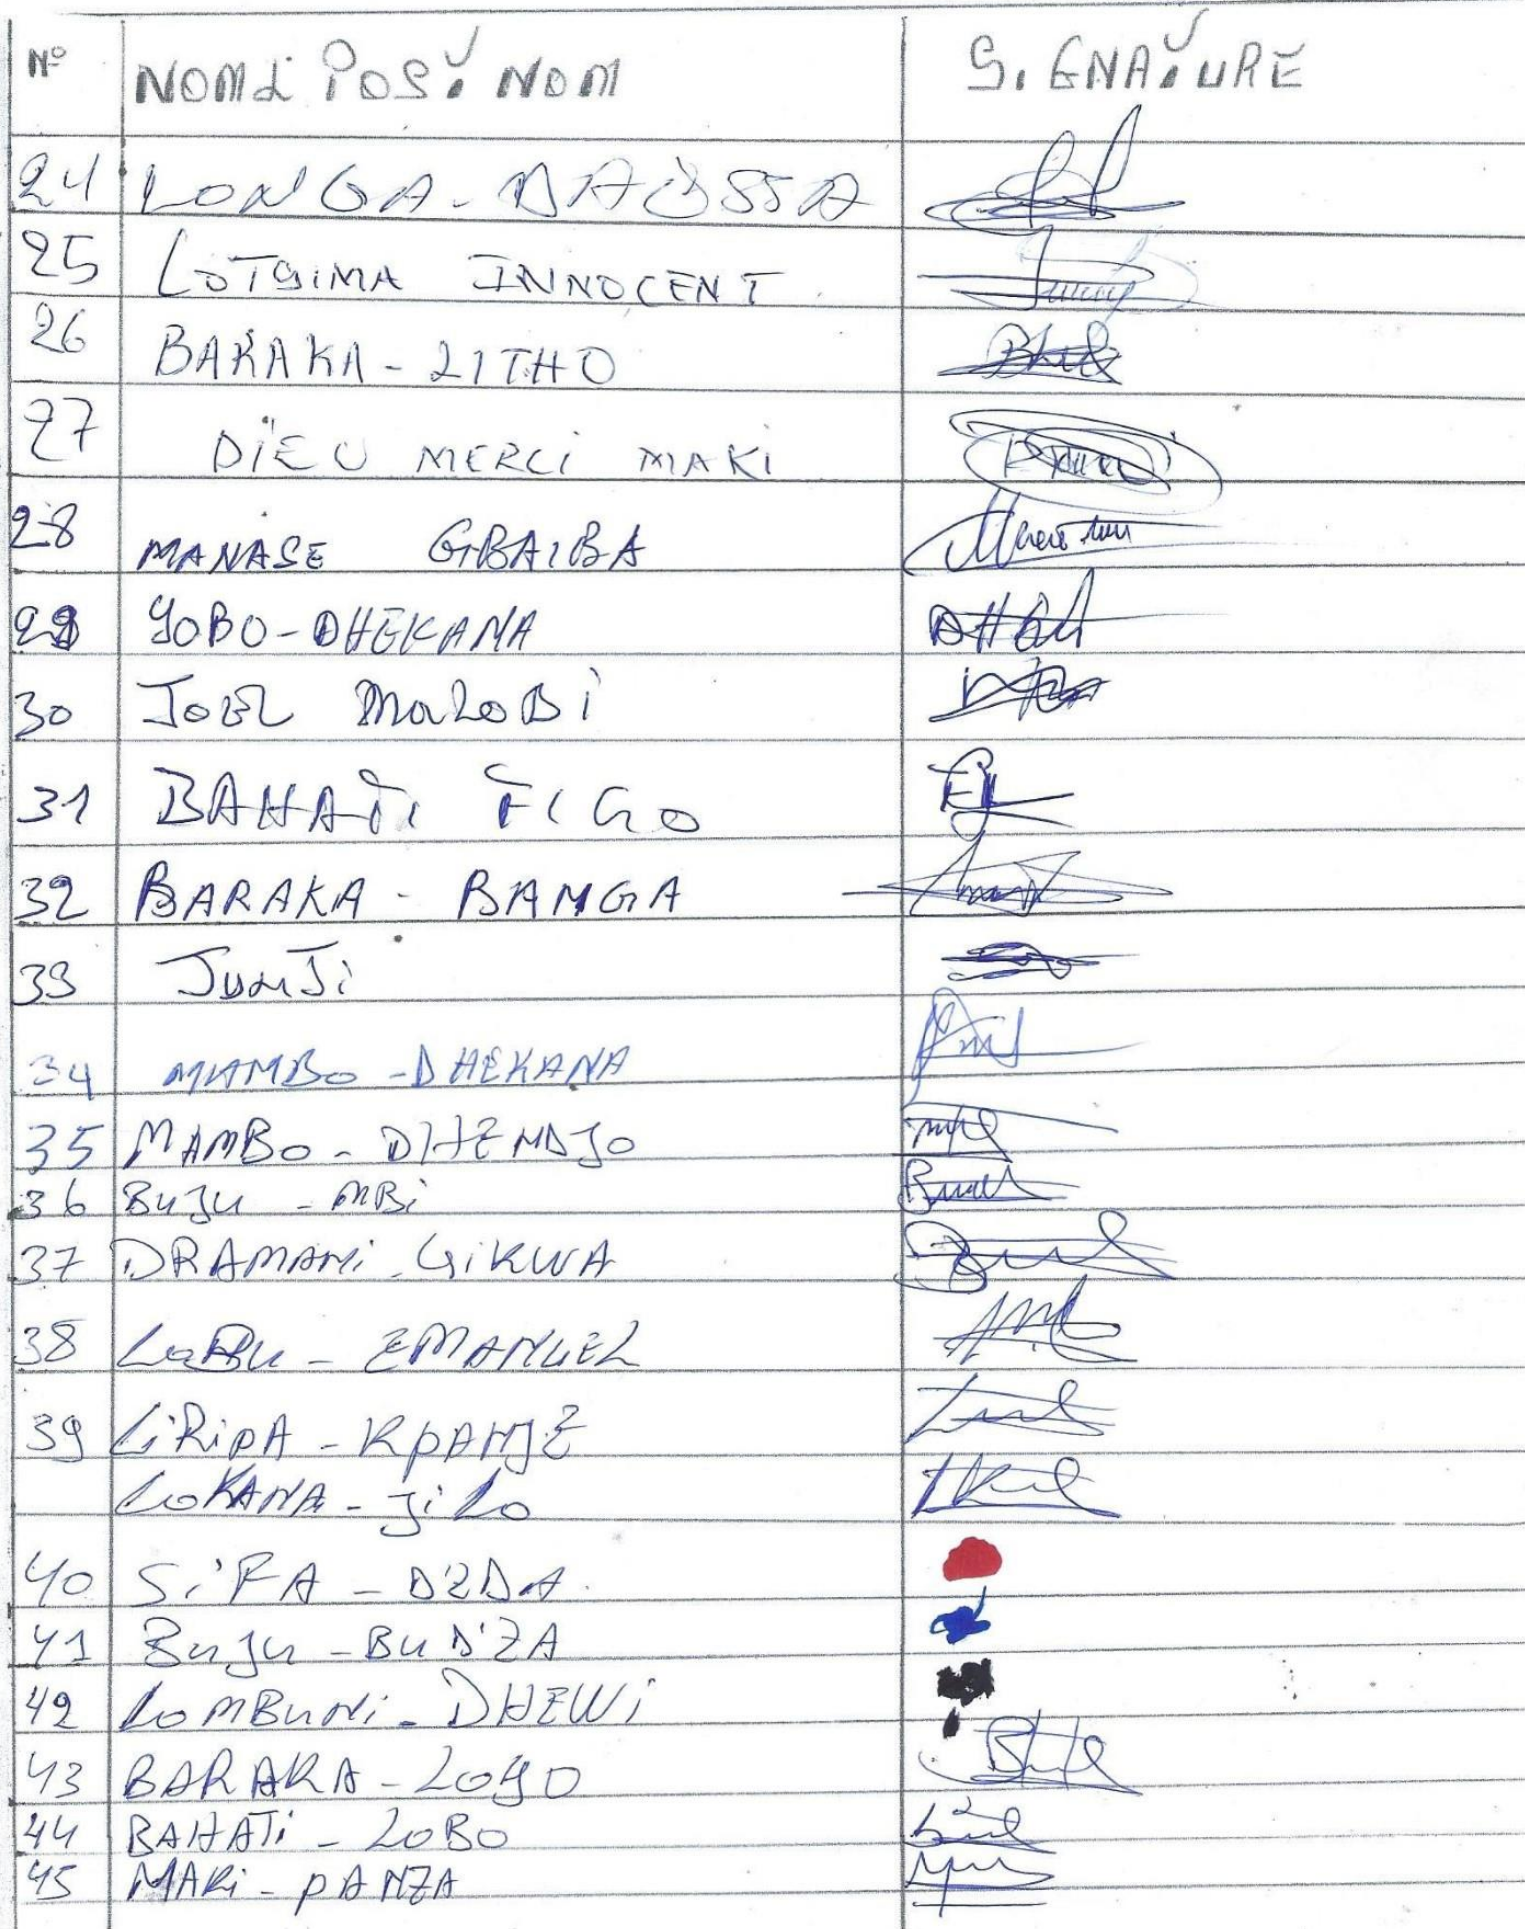 N° NOM & POST NOM SIGNATURE
24 LONGA - DAOSSA
25 LOTSIMA INNOCENT
26 BARAKA - LITHO
27 DIEU MERCI MAKI
28 MANASE GBAIBA
29 YOBO - DHEKANA
30 JOEL MaLoBi
31 BAHATi FIGO
32 BARAKA - BANGA
33 JUMJi
34 MAMBO - DHEKANA
35 MAMBO - DHENDJO
36 BuJu - MBi
37 DRAMANi - GiKWA
38 LoBu - EMANUEL
39 LiRipA - KpANJE
LoKANA - JiLo
40 Si'FA - DZDA
41 BuJu - BuD'ZA
42 LoMBuNi - DHEWi
43 BARAKA - LOYO
44 BAHATi - LOBO
45 MAKi - pANZA